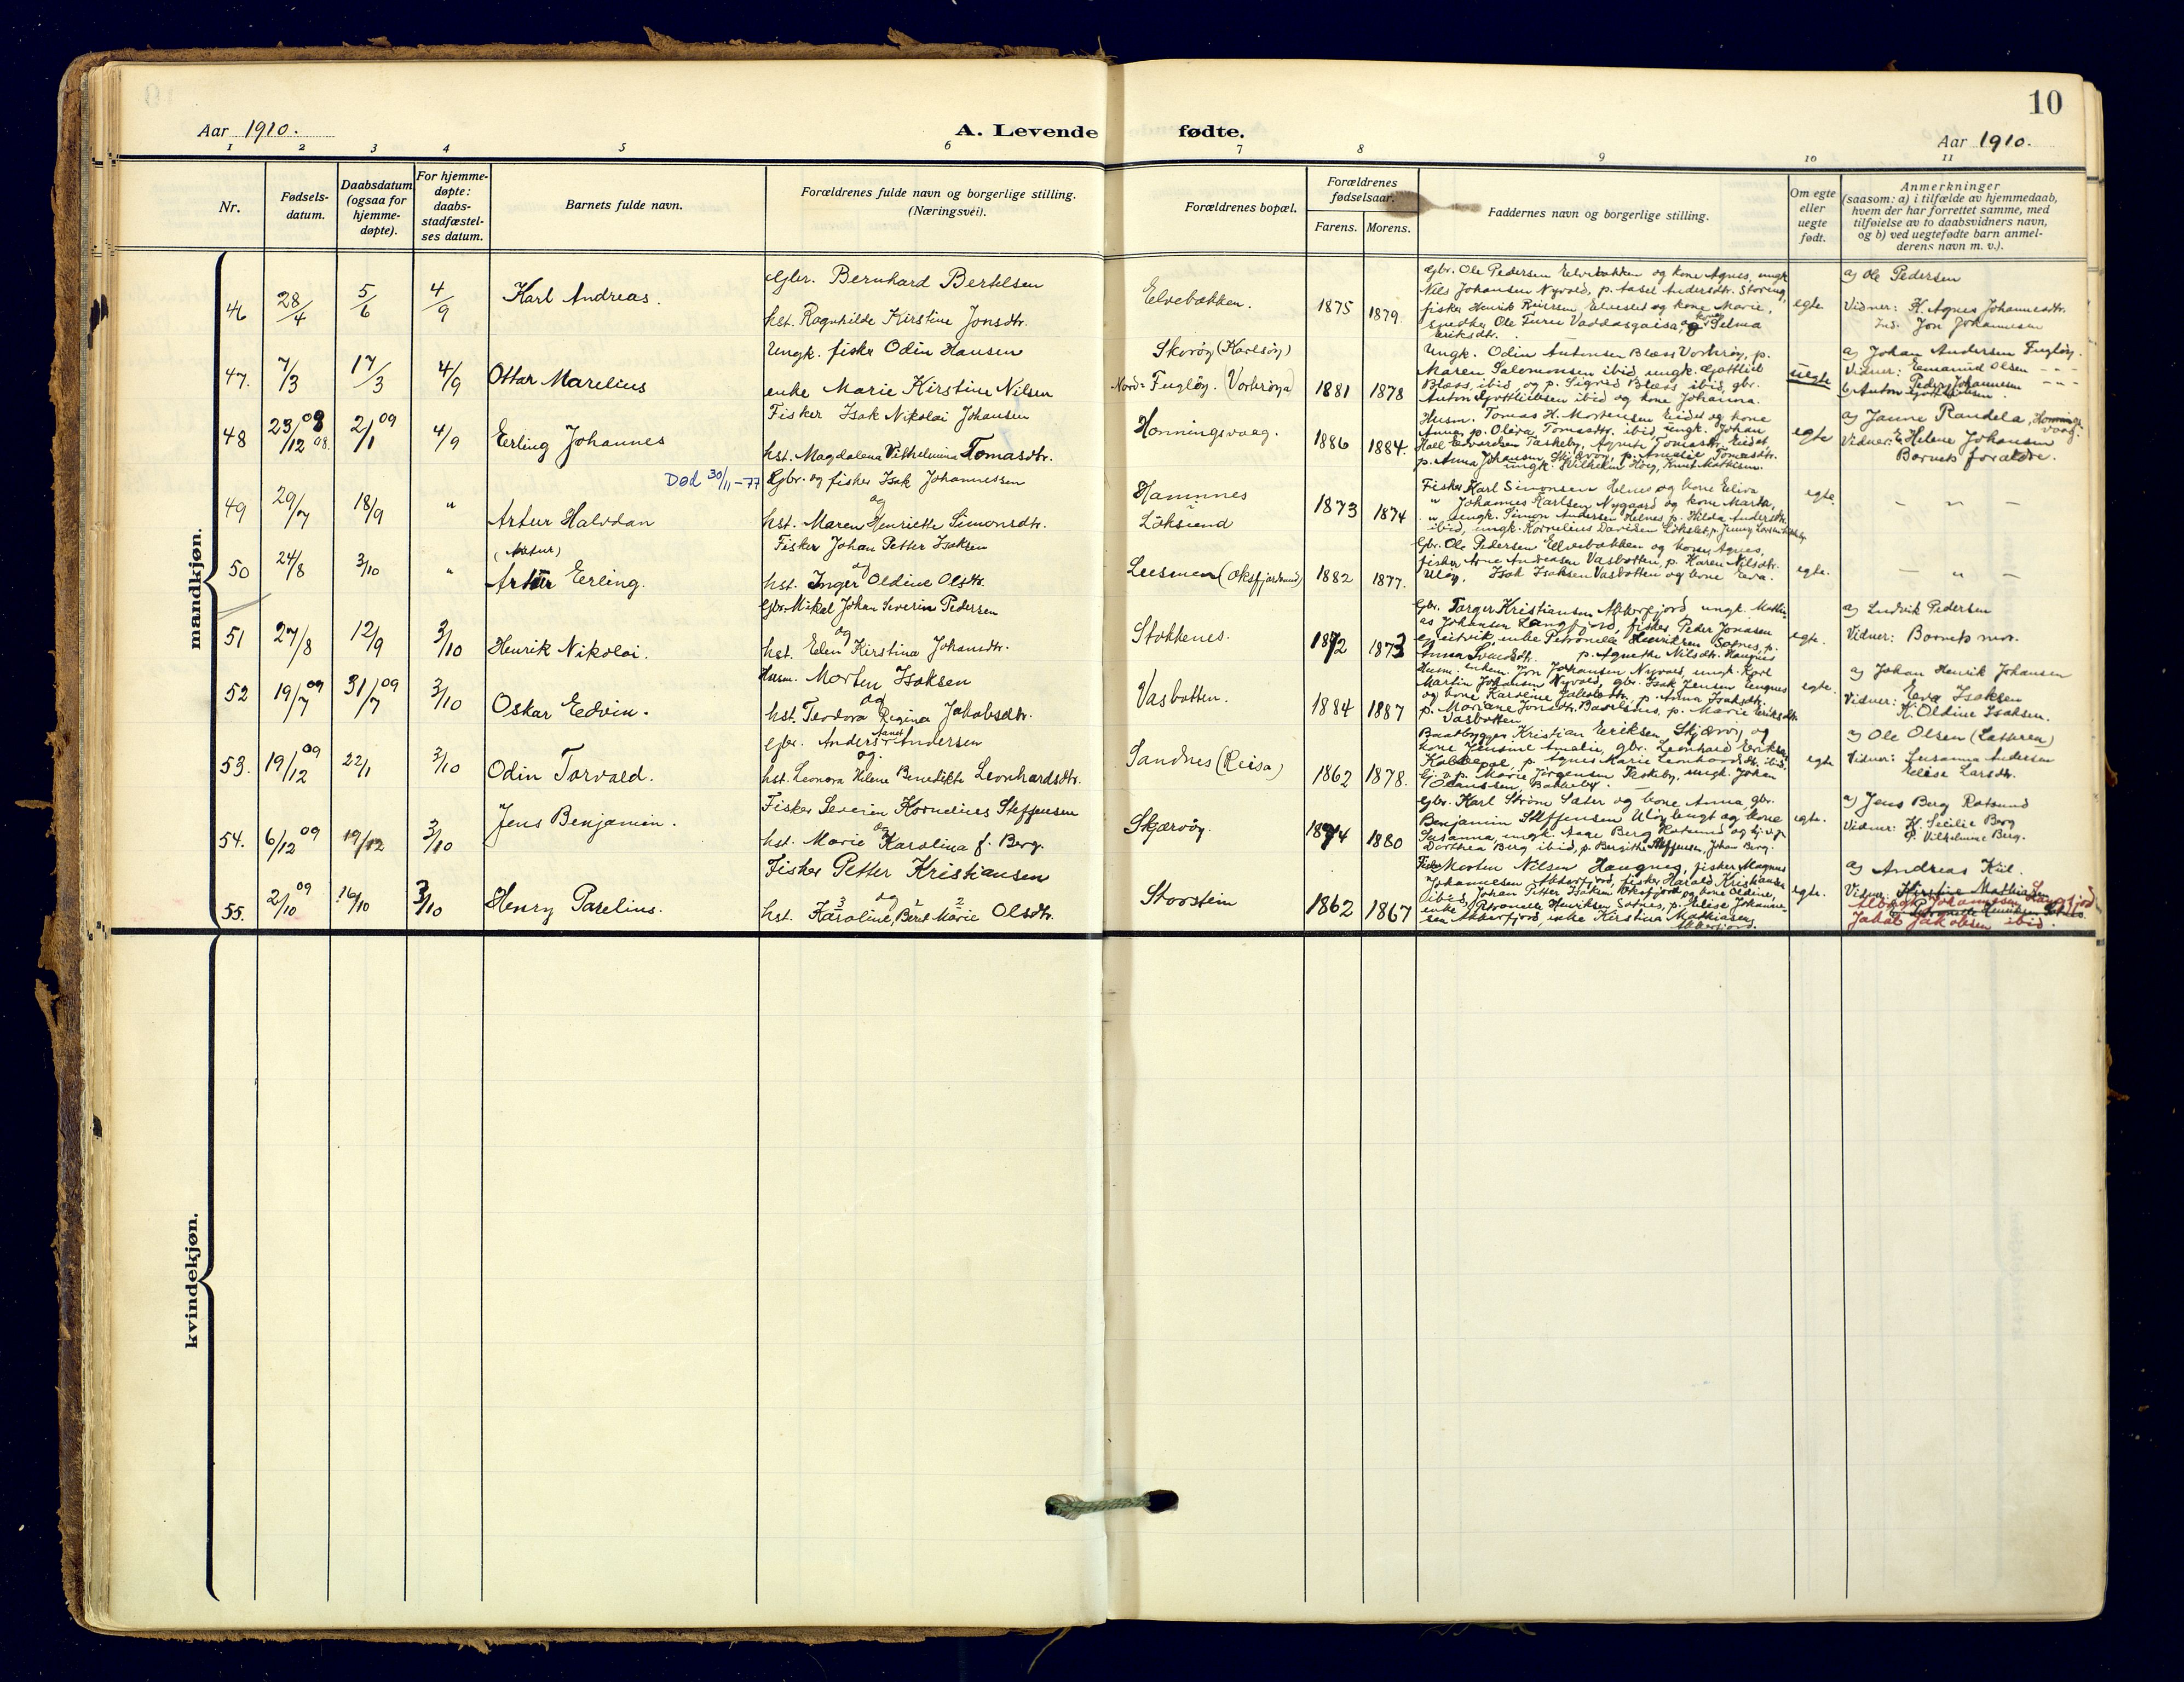 10
Aar 1910.
A. Levende fødte.
Aar 1910.
1 2 3 4 5 6 7 8 9 10 11
Nr.
Fødsels-
datum.
Daabsdatum
(ogsaa for
hjemme-
døpte).
For hjemme-
døpte:
daabs-
stadfæstel-
ses datum.
Barnets fulde navn.
Forældrenes fulde navn og borgerlige stilling.
(Næringsvei).
Forældrenes bopæl.
Forældrenes
fødselsaar.
Farens. Morens.
Faddernes navn og borgerlige stilling.
Om egte
eller
uegte
født.
Anmerkninger
(saasom: a) i tilfælde av hjemmedaab,
hvem der har forrettet samme, med
tilføielse av to daabsvidners navn,
og b) ved uegtefødte barn anmel-
derens navn m. v.).
mandkjøn.
46 28/4 5/6 4/9 Karl Andreas.
Gbr. Bernhard Bertelsen
hst. Ragnhilde Kirstine Jonsdtr.
Elvebakken. 1875 1879.
Gbr. Ole Pedersen Elvebakken og kone Agnes, ungk.
Nils Johansen Nyvold, p. Aasel Andersdtr. Storeng,
fisker Henrik Elvestrand og kone Marie,
Ole Furu Vaddasgaisa, og kone Selma
Eriksdtr.
egte
a) Ole Pedersen
Vidner: K. Agnes Johannesdtr.
Ind. Jon Johannesen
47. 7/3 17/3 4/9 Ottar Marelius
Ungk. fisker Odin Hansen
enke Marie Kirstine Nilsen
Skorøy (Karlsøy)
Nord-Fugløy. (Vorterøya) 1881 1878
Ungk. Odin Antonsen Blæss Vorterøy, p.
Maren Salomonsen ibid, ungk. Gottlieb
Blæss, ibid, og p. Sigrid Blæss ibid, gbr.
Anton Gottliebsen ibid og kone Johanna.
uegte
a) Johan Andersen Fugløy.
Vidner: Emanuel Olsen - " -
Peder Johannesen - " -
b) Anton Gottliebsen.
48 23/12 08 2/1 09 4/9 Erling Johannes
Fisker Isak Nikolai Johansen
hst. Magdalena Vilhelmina Tomasdtr.
Honningsvaag. 1886 1884.
Husm. Tomas H. Mortensen Eidet og kone
Anna, p. Oliva Tomasdtr. ibid, ungk. Johan
Hall Edvardsen Taskeby, Agnete Tomasdtr. Eidet,
p. Anna Johansen, Skjærvøy, p. Amalie Tomasdtr.
ungk. Wilhelm Høeg, Knut Mathisen.
egte
a) Janne Randela, Honnings-
vaag.
Vidner: Helene Johansen
Barnets forældre.
Død 30/11-77
49 29/7 18/9 " Artur Halvdan
Gbr. og fisker Isak Johannessen
og
hst. Maren Henriette Simonsdtr.
Hamnnes
Løksund 1873 1874
Fisker Karl Simonsen Helnes og kone Eliva
" Johannes Karlsen Nygaard og kone Marta,
" ungk. Simon Andersen Helnes, p. Hilda Andersdtr.
ibid, ungk. Kornelius Davidsen Løkslet, p. Jenny Larsen
egte
- " -
50 24/8 3/10 " Artur Erling.
(Artur)
Fisker Johan Petter Isaksen
og
hst. Inger Oldine Olsdtr.
Leesmen (Oksfjordsund) 1882 1877.
Gbr. Ole Pedersen Elvebakken og kone Agnes,
fisker Arne Andreasen Vasbotten, p. Karen Nilsdtr.
Uløy, Isak Isaksen Vasbotten og kone Eva.
egte.
- " -
51 27/8 12/9 3/10 Henrik Nikolai.
Gbr. Mikal Johan Severin Pedersen
og
hst. Elen Kirstina Johansdtr.
Stokkenes. 1872 1873
Gbr. Torger Kristiansen Alterfjord, ungk. Mathi-
as Johansen Langfjord, fisker Peder Jonasen
enke Petronelle Henriksen Sotnes, p.
Anna p. Agnethe Nilsdtr. Haugnes
egte.
a) Ludvik Pedersen
Vidner: Barnets mor.
52 19/7 09 31/7 09 3/10 Oskar Edvin.
Husm. Morten Isaksen
og
hst. Teodora Regina Jakobsdtr.
Vasbotten. 1884 1887
Husm. enkem. Jon Johansen Nyvold, ungk. Karl
Martin Johansen Nyvold, gbr. Isak Jensen Lengnes
og kone Karoline Jakobsdtr. p. Anna Isaksdtr.
p. Mariane Jonsdtr. p. Marie Eriksdtr.
Vasbotten
egte.
a) Johan Henrik Johansen
Vidner: Eva Isaksen
K. Oldine Isaksen.
53. 19/12 09 22/1 3/10 Odin Torvald.
Gbr. Anders Aanet Andersen
og
hst. Leonora Helene Benedikte Leonhardsdtr.
Sandnes (Reisa) 1862 1878.
Baatbygger Kristian Eriksen, Skjærvøy, og
kone Jensine Amalie, gbr. Leonhard Eriksen
p. Agnes Marie Leonhardsdtr. ibid,
tj. p. Marie Jørgensen Taskeby, ungk. Johan
Bakkeby.
egte
a) Ole Olsen (Latteren)
Vidner: Susanna Andersen
Elise Larsdtr.
54. 6/12 09 19/12 3/10 Jens Benjamin.
Fisker Severin Kornelius Steffensen
og
hst. Marie Karolina f. Berg.
Skjærvøy. 1874 1880
Gbr. Karl Strøm Sæter og kone Anna, gbr.
Benjamin Steffensen Uløybugt og kone
Susanna, ungk. Aage Berg Rotsund og tj. p.
Dorthea Berg ibid, p. Bergithe Steffensen, Johan Berg.
egte.
a) Jens Berg Rotsund
Vidner: K. Secilie Berg
P. Vilhelmine Berg.
55. 2/10 09 16/10 3/10 Henry Parelius.
Fisker Petter Kristiansen
og
hst. Karoline, Berit Marie Olsdtr.
Storstein 1862 1867
Fisker Morten Nilsen Haugnes, fisker Magnus
Johannesen Alterfjord, fisker Harald Kristiansen
ibid, Johan Petter Isaksen, Oksfjord og kone Oldine,
enke Petronelle Henriksen Sotnes, p. Elise Johanne-
sen Alterfjord, enke Kirstina Mathiasen
Alterfjord.
egte.
a) Andreas Kiil.
Vidner: Kirstine Mathiasen
Johannesen Langfjord
Petronelle Henriksen Sotnes.
Jakob Jakobsen ibid.
kvindekjøn.